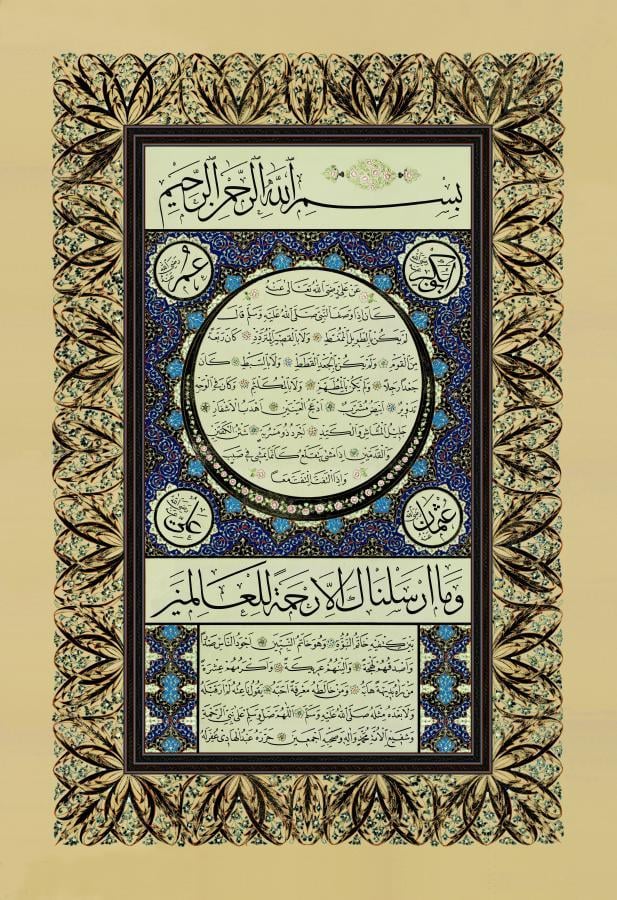 بسم الله الرحمن الرحيم
ابو بكر رضي الله عنه
عمر رضي الله عنه
عن علي رضي الله تعالى عنه
كان اذا وصف النبي صلى الله عليه وسلم قال
لم يكن بالطويل الممغط ولا بالقصير المتردد كان ربعة
من القوم ولم يكن بالجعد القطط ولا بالسبط كان
جعدا رجلا ولم يكن بالمطهم ولا بالمكلثم وكان في الوجه
تدوير ابيض مشرب ادعج العينين اهدب الاشفار
جليل المشاش والكتد اجرد ذو مسربة شثن الكفين
والقدمين اذا مشى يتقلع كانما يمشي في صبب
واذا التفت التفت معا
عثمان رضي الله عنه
علي رضي الله عنه
وما ارسلناك الا رحمة للعالمين
بين كتفيه خاتم النبوة وهو خاتم النبيين اجود الناس صدرا
واصدقهم لهجة والينهم عريكة واكرمهم عشرة
من رآه بديهة هابه ومن خالطه معرفة احبه يقول ناعته لم ار قبله
ولا بعده مثله صلى الله عليه وسلم اللهم صل وسلم على نبي الرحمة
وشفيع الامة محمد واله وصحبه اجمعين حرره عبد الهادي غفر له